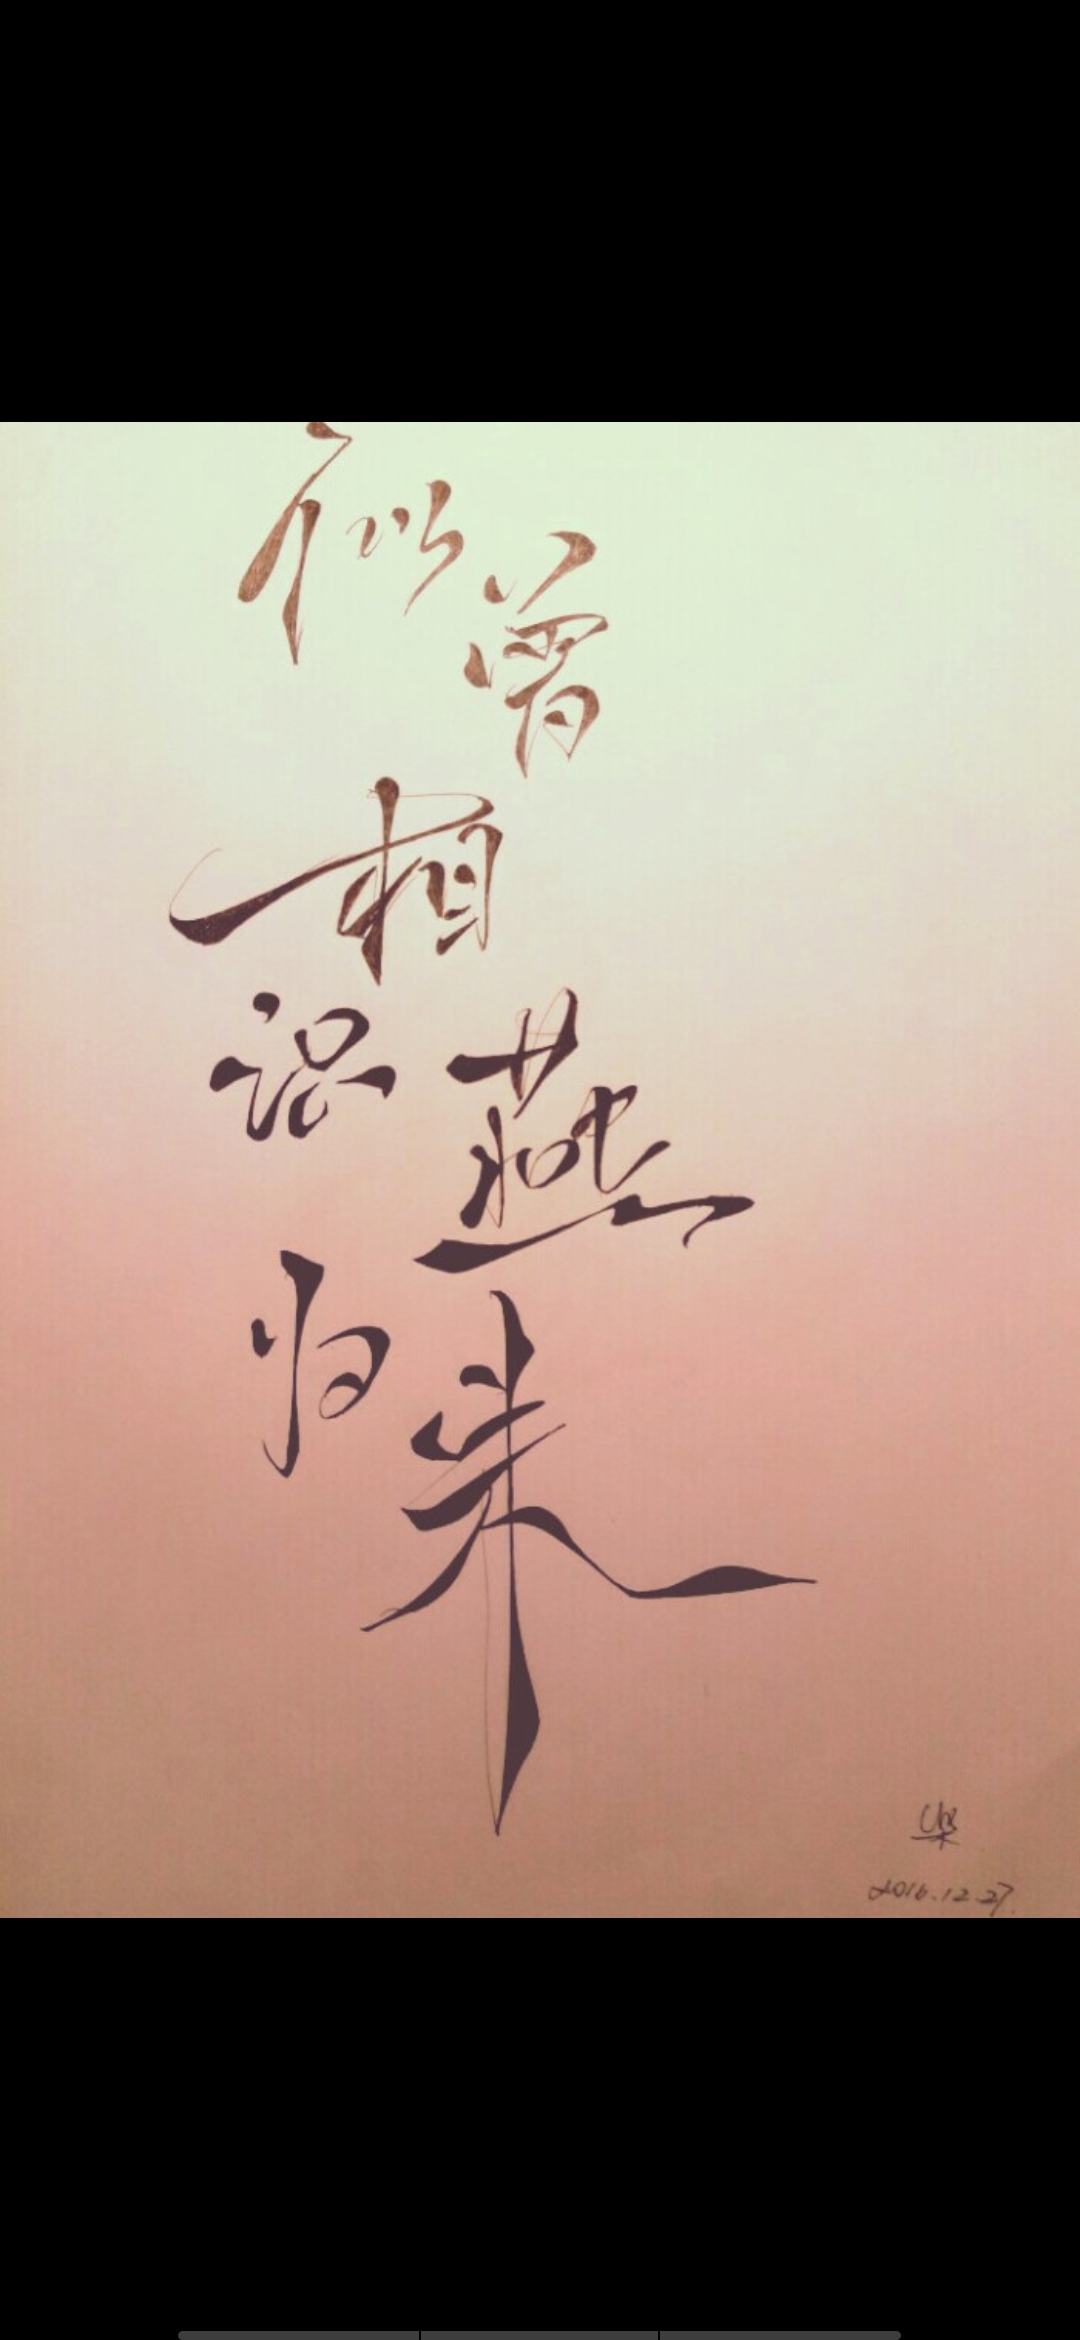 似曾
相
识燕
归来
2016.12.27.